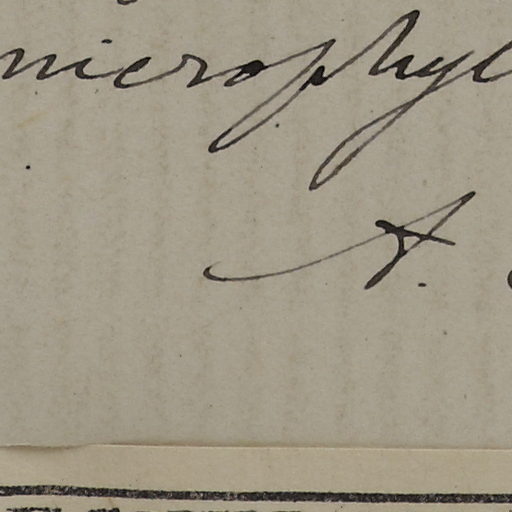 microphyl
A.